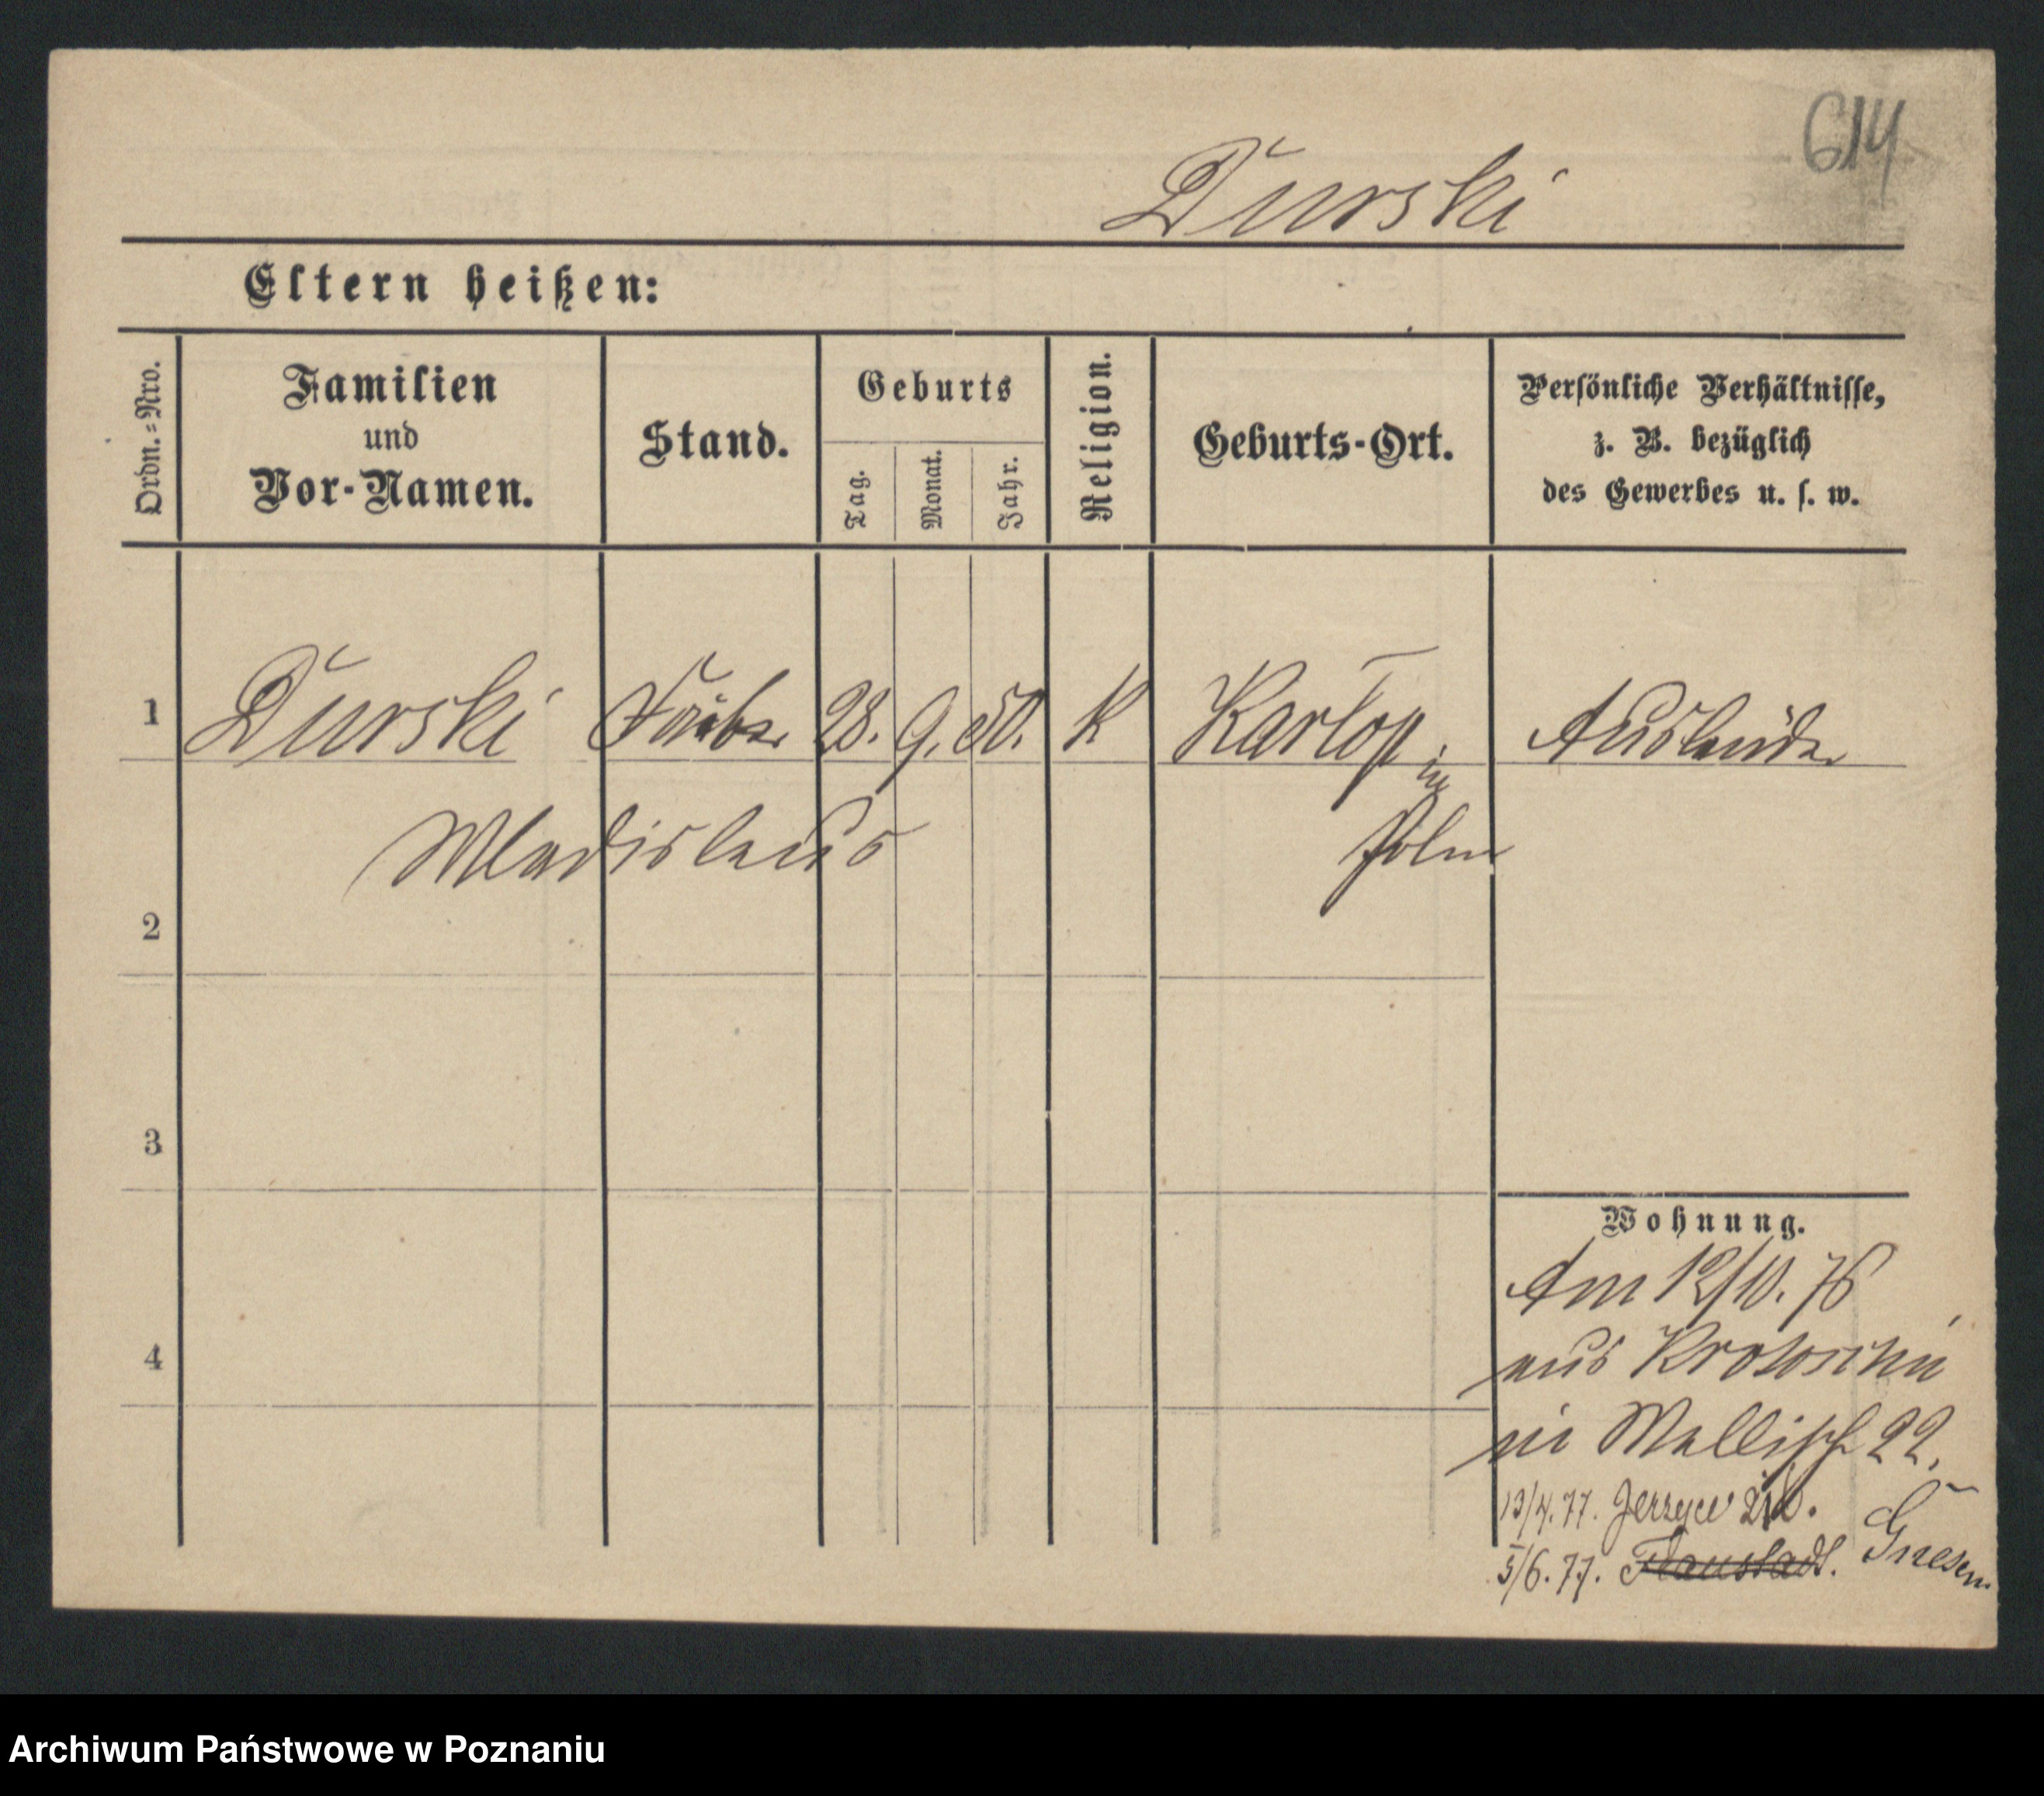 614
Durski
Eltern heißen:
Ordn.=Nro.
Familien
und
Vor-Namen.
Stand.
Geburts
Tag.
Monat.
Jahr.
Religion.
Geburts-Ort.
Persönliche Verhältnisse,
z. B. bezüglich
des Gewerbes u. s. w.
1 Durski Färber 28. 9. 50. K Ausländer
in
Wladislaus Polen
2
3
4
Wohnung.
Am 12/10. 76
aus Krotoschin
in Wallisch 22.
13/4. 77. Jerzyce
5/6. 77. Fraustadt. Gnesen
Archiwum Państwowe w Poznaniu